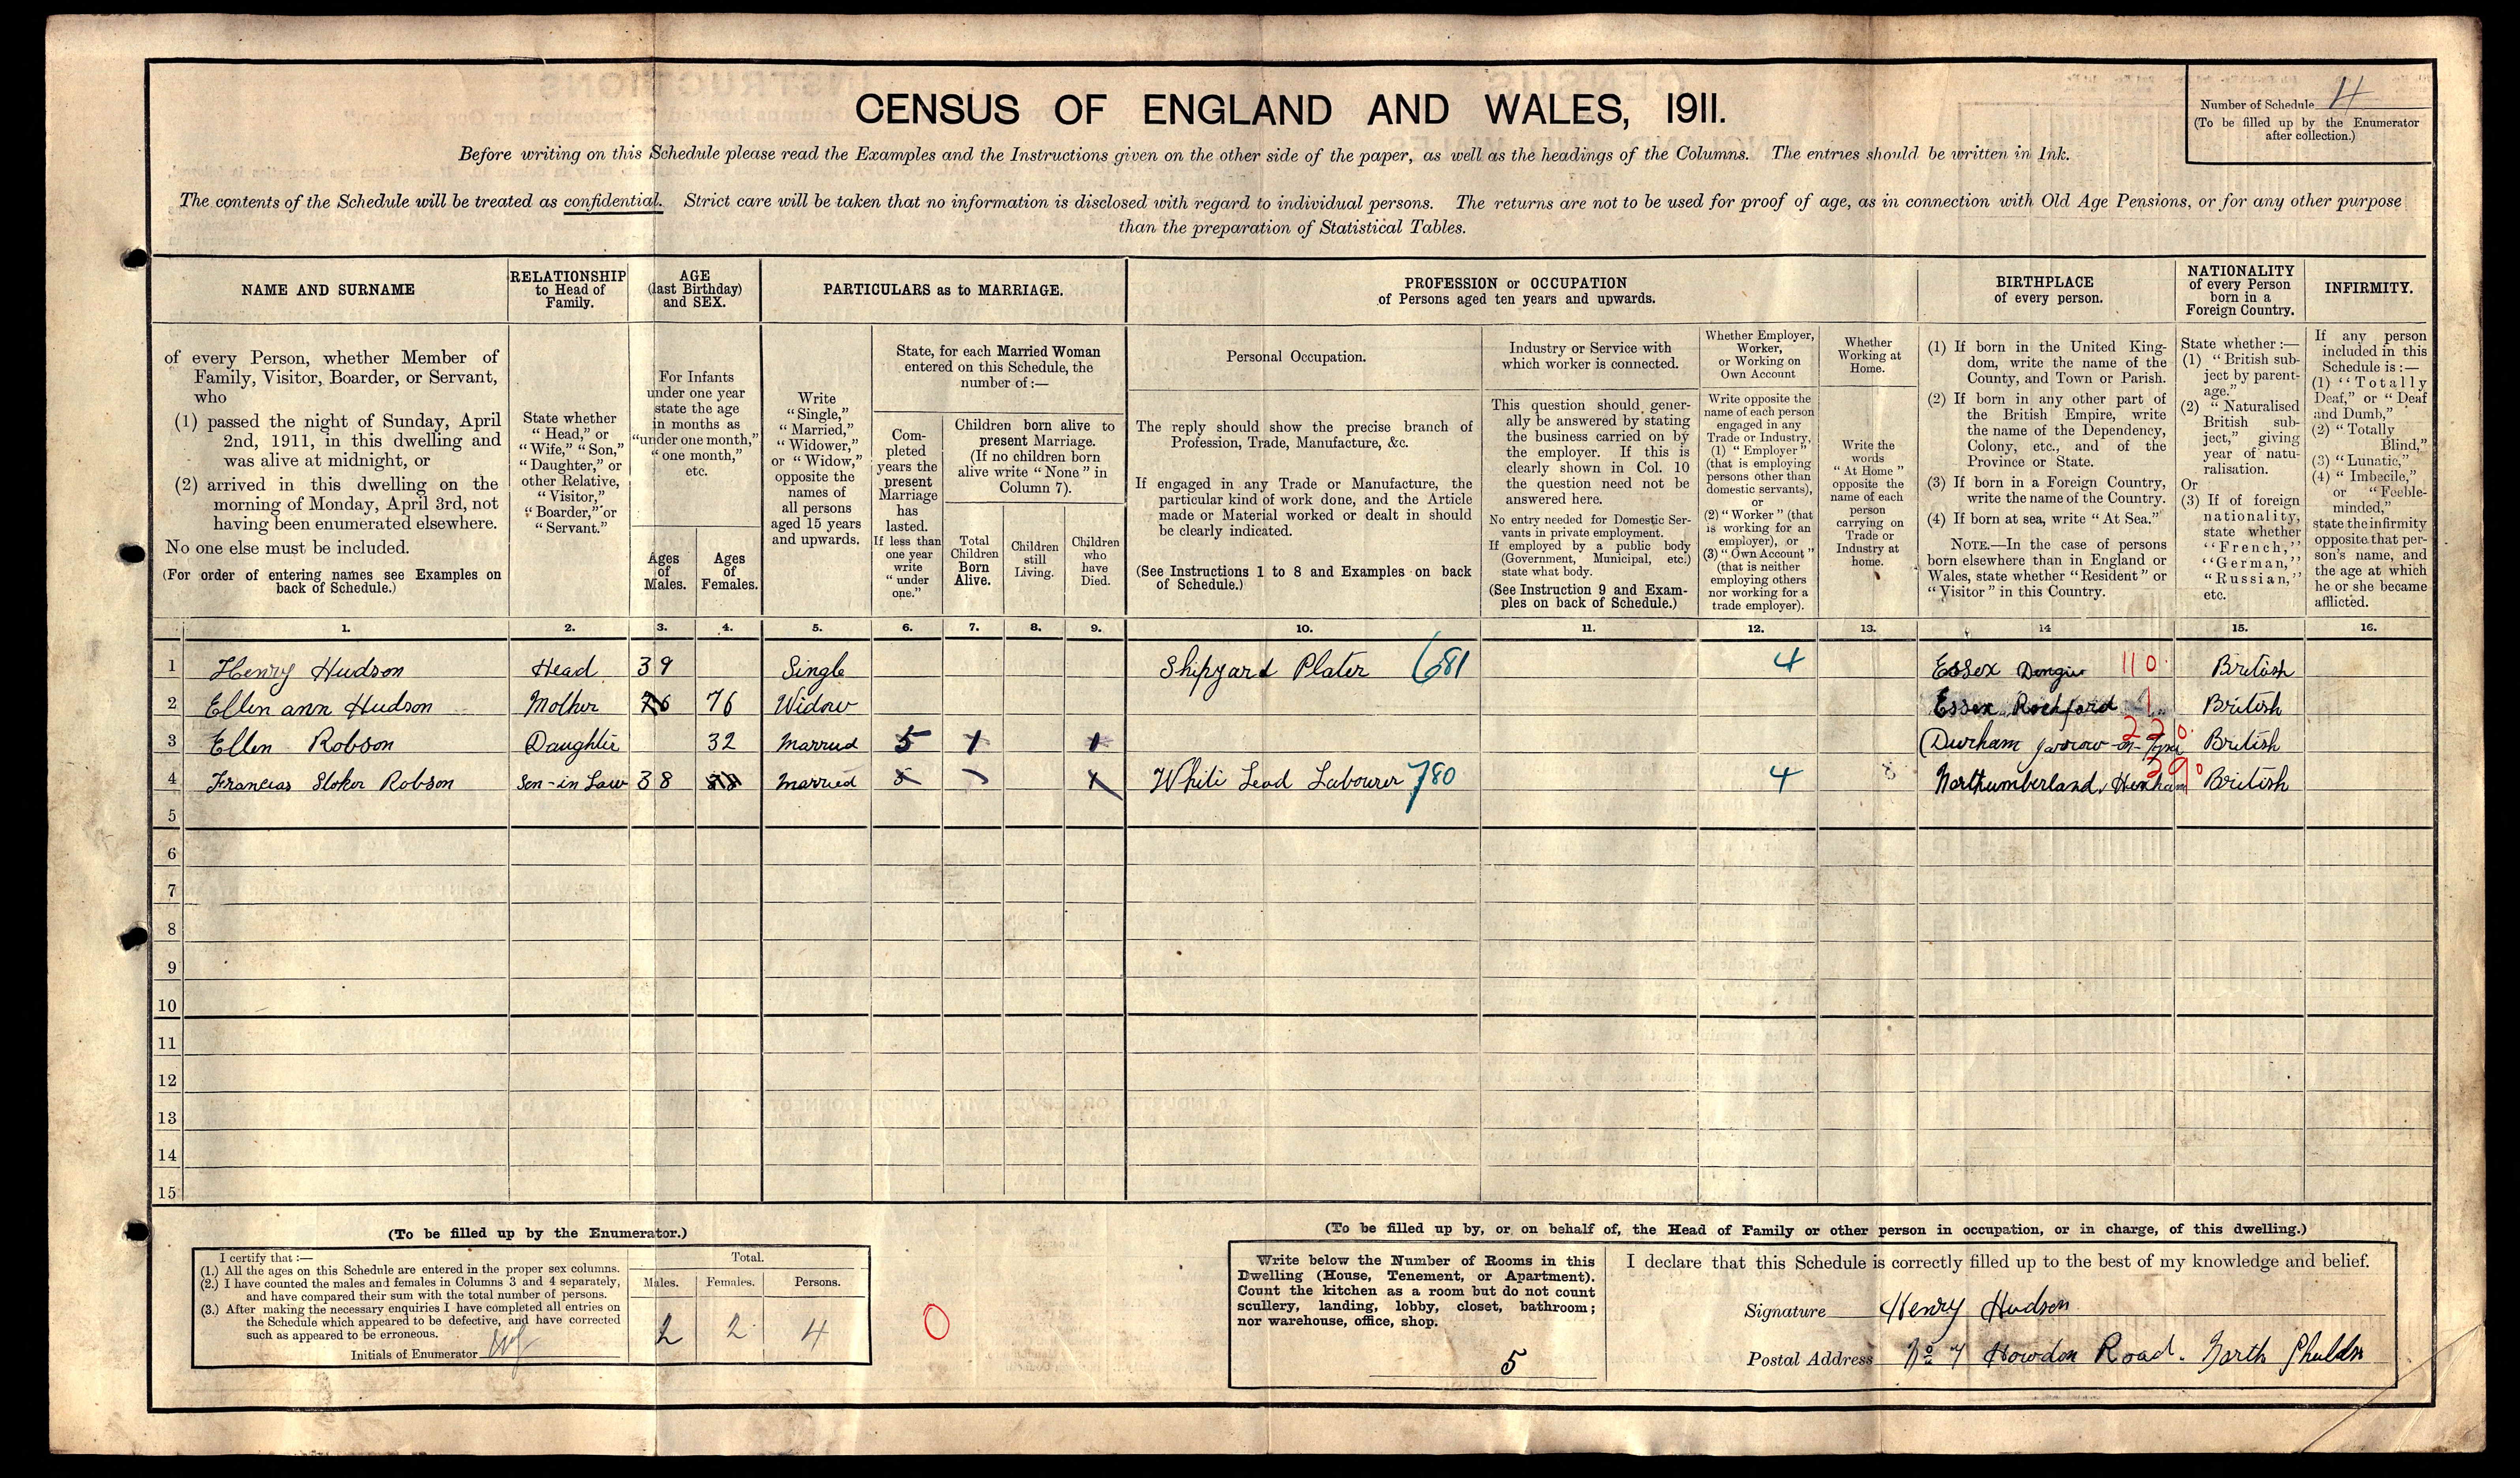 CENSUS OF ENGLAND AND WALES, 1911.
Number of Schedule 4
(To be filled up by the Enumerator
after collection.)
Before writing on this Schedule please read the Examples and the Instructions given on the other side of the paper, as well as the headings of the Columns. The entries should be written in Ink.
The contents of the Schedule will be treated as confidential. Strict care will be taken that no information is disclosed with regard to individual persons. The returns are not to be used for proof of age, as in connection with Old Age Pensions, or for any other purpose
than the preparation of Statistical Tables.
NAME AND SURNAME
RELATIONSHIP
to Head of
Family.
AGE
(last Birthday)
and SEX.
PARTICULARS as to MARRIAGE.
PROFESSION or OCCUPATION
of Persons aged ten years and upwards.
BIRTHPLACE
of every person.
NATIONALITY
of every Person
born in a
Foreign Country.
INFIRMITY.
of every Person, whether Member of
Family, Visitor, Boarder, or Servant,
who
(1) passed the night of Sunday, April
2nd, 1911, in this dwelling and
was alive at midnight, or
(2) arrived in this dwelling on the
morning of Monday, April 3rd, not
having been enumerated elsewhere.
No one else must be included.
(For order of entering names see Examples on
back of Schedule.)
State whether
"Head," or
"Wife," "Son,"
"Daughter," or
other Relative,
"Visitor,"
"Boarder," or
"Servant."
For Infants
under one year
state the age
in months as
"under one month,"
"one month,"
etc.
Ages
of
Males.
Ages
of
Females.
Write
"Single,"
"Married,"
"Widower,"
or "Widow,"
opposite the
names of
all persons
aged 15 years
and upwards.
State, for each Married Woman
entered on this Schedule, the
number of:—
Com-
pleted
years the
present
Marriage
has
lasted.
If less than
one year
write
"under
one."
Children born alive to
present Marriage.
(If no children born
alive write "None" in
Column 7).
Total
Children
Born
Alive.
Children
still
Living.
Children
who
have
Died.
Personal Occupation.
The reply should show the precise branch of
Profession, Trade, Manufacture, &c.
If engaged in any Trade or Manufacture, the
particular kind of work done, and the Article
made or Material worked or dealt in should
be clearly indicated.
(See Instructions 1 to 8 and Examples on back
of Schedule.)
Industry or Service with
which worker is connected.
This question should gener-
ally be answered by stating
the business carried on by
the employer. If this is
clearly shown in Col. 10
the question need not be
answered here.
No entry needed for Domestic Ser-
vants in private employment.
If employed by a public body
(Government, Municipal, etc.)
state what body.
(See Instruction 9 and Exam-
ples on back of Schedule.)
Whether Employer,
Worker,
or Working on
Own Account
Write opposite the
name of each person
engaged in any
Trade or Industry,
(1) "Employer"
(that is employing
persons other than
domestic servants),
or
(2) "Worker" (that
is working for an
employer), or
(3) "Own Account"
(that is neither
employing others
nor working for a
trade employer).
Whether
Working at
Home.
Write the
words
"At Home"
opposite the
name of each
person
carrying on
Trade or
Industry at
home.
(1) If born in the United King-
dom, write the name of the
County, and Town or Parish.
(2) If born in any other part of
the British Empire, write
the name of the Dependency,
Colony, etc., and of the
Province or State.
(3) If born in a Foreign Country,
write the name of the Country.
(4) If born at sea, write "At Sea."
NOTE.—In the case of persons
born elsewhere than in England or
Wales, state whether "Resident" or
"Visitor" in this Country.
State whether:—
(1) "British sub-
ject by parent-
age."
(2) "Naturalised
British sub-
ject," giving
year of natu-
ralisation.
Or
(3) If of foreign
nationality,
state whether
"French,"
"German,"
"Russian,"
etc.
If any person
included in this
Schedule is:—
(1) "Totally
Deaf," or "Deaf
and Dumb,"
(2) "Totally
Blind,"
(3) "Lunatic,"
(4) "Imbecile,"
or "Feeble-
minded,"
state the infirmity
opposite that per-
son's name, and
the age at which
he or she became
afflicted.
1. 2. 3. 4. 5. 6. 7. 8. 9. 10. 11. 12. 13. 14 15. 16.
1 Henry Hudson Head 39 Single Shipyard Plater 681 4 Essex Dengie 110 British
2 Ellen ann Hudson Mother 76 76 Widow Essex Rochford British
3 Ellen Robson Daughter 32 Married 5 1 1 Durham Jarrow-on-Tyne 220 British
4 Francias Stoker Robson Son-in Law 38 38 Married 5 White Lead Labourer 780 4 Northumberland, Hexham 390 British
5
6
7
8
9
10
11
12
13
14
15
(To be filled up by the Enumerator.)
I certify that:—
(1.) All the ages on this Schedule are entered in the proper sex columns.
(2.) I have counted the males and females in Columns 3 and 4 separately,
and have compared their sum with the total number of persons.
(3.) After making the necessary enquiries I have completed all entries on
the Schedule which appeared to be defective, and have corrected
such as appeared to be erroneous.
Initials of Enumerator
Total.
Males. Females. Persons.
2 2 4
0
(To be filled up by, or on behalf of, the Head of Family or other person in occupation, or in charge, of this dwelling.)
Write below the Number of Rooms in this
Dwelling (House, Tenement, or Apartment).
Count the kitchen as a room but do not count
scullery, landing, lobby, closet, bathroom;
nor warehouse, office, shop.
5
I declare that this Schedule is correctly filled up to the best of my knowledge and belief.
Signature Henry Hudson
Postal Address No 7 Howdon Road. North Shields